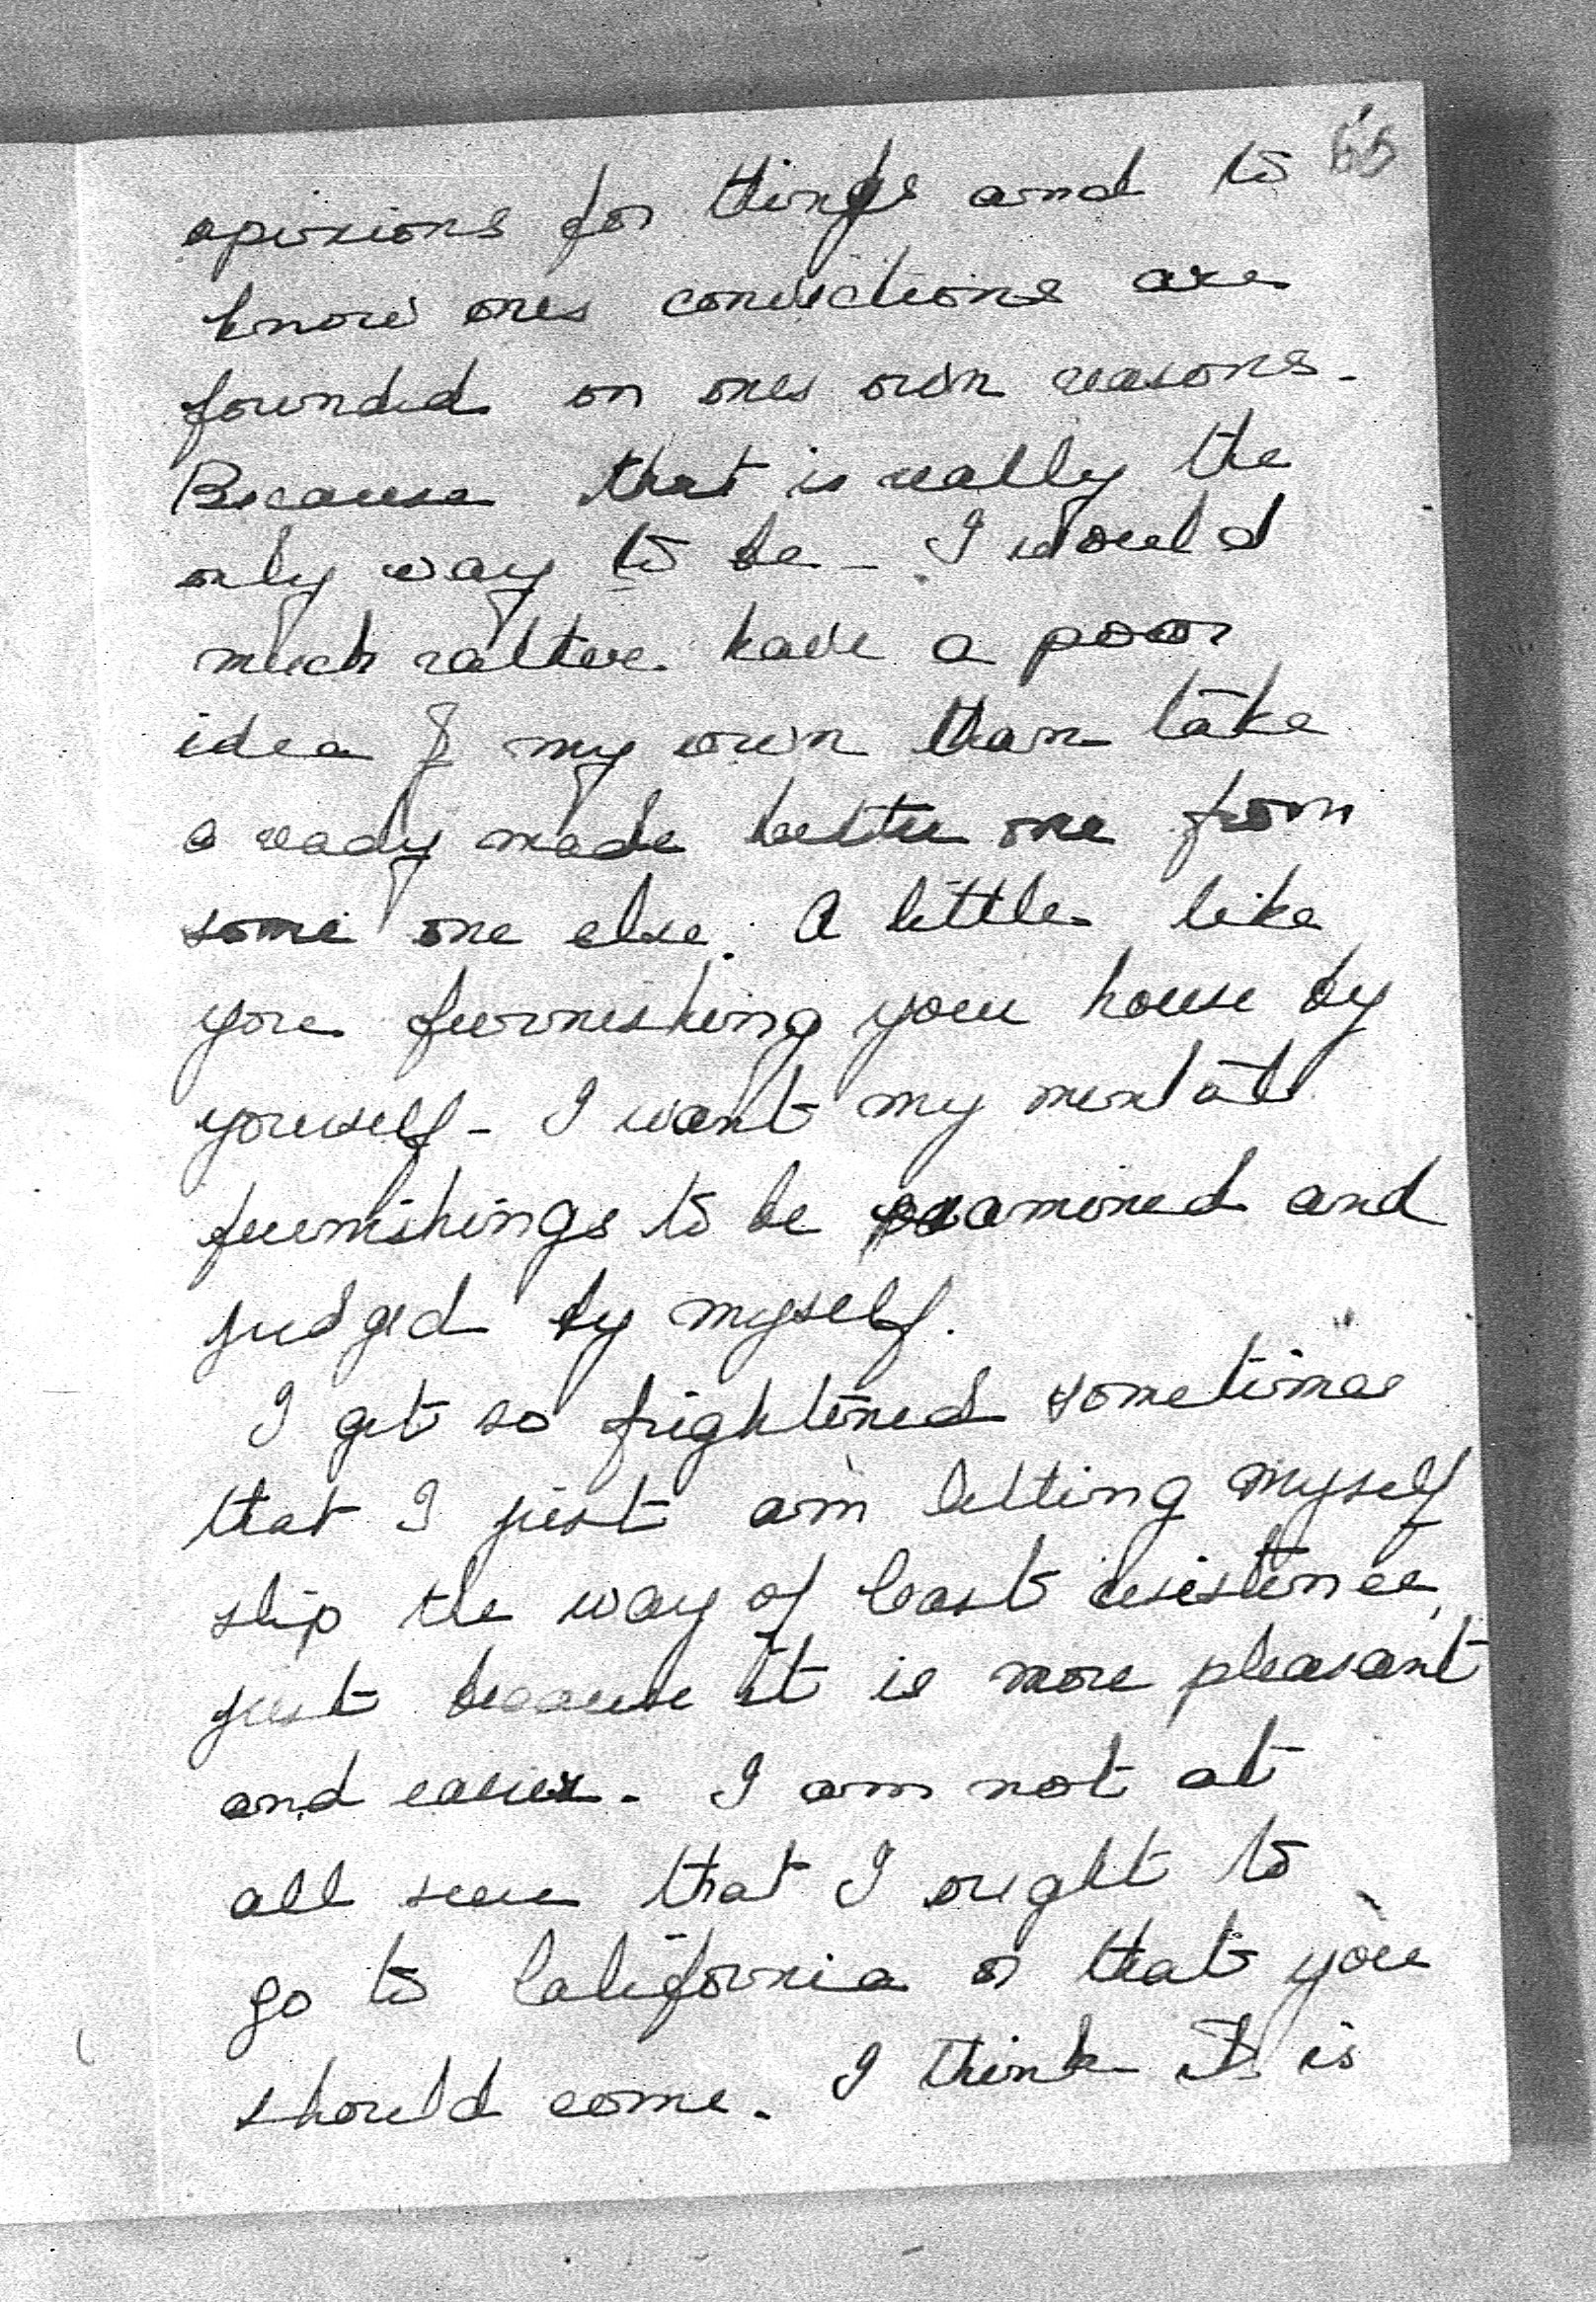 opinions for things and to
know ones convictions are
founded on ones own reasons -
Because that is really the
only way to be - I would
much rather have a poor
idea of my own than take
a ready made better one from
some one else. A little like
you furnishing your house by
yourself - I want my mental
furnishings to be examined and
judged by myself.
I get so frightened sometimes
that I just am letting myself
slip the way of least resistence,
just because it is more pleasant
and easier - I am not at
all sure that I ought to
go to California or that you
should come. I think it is